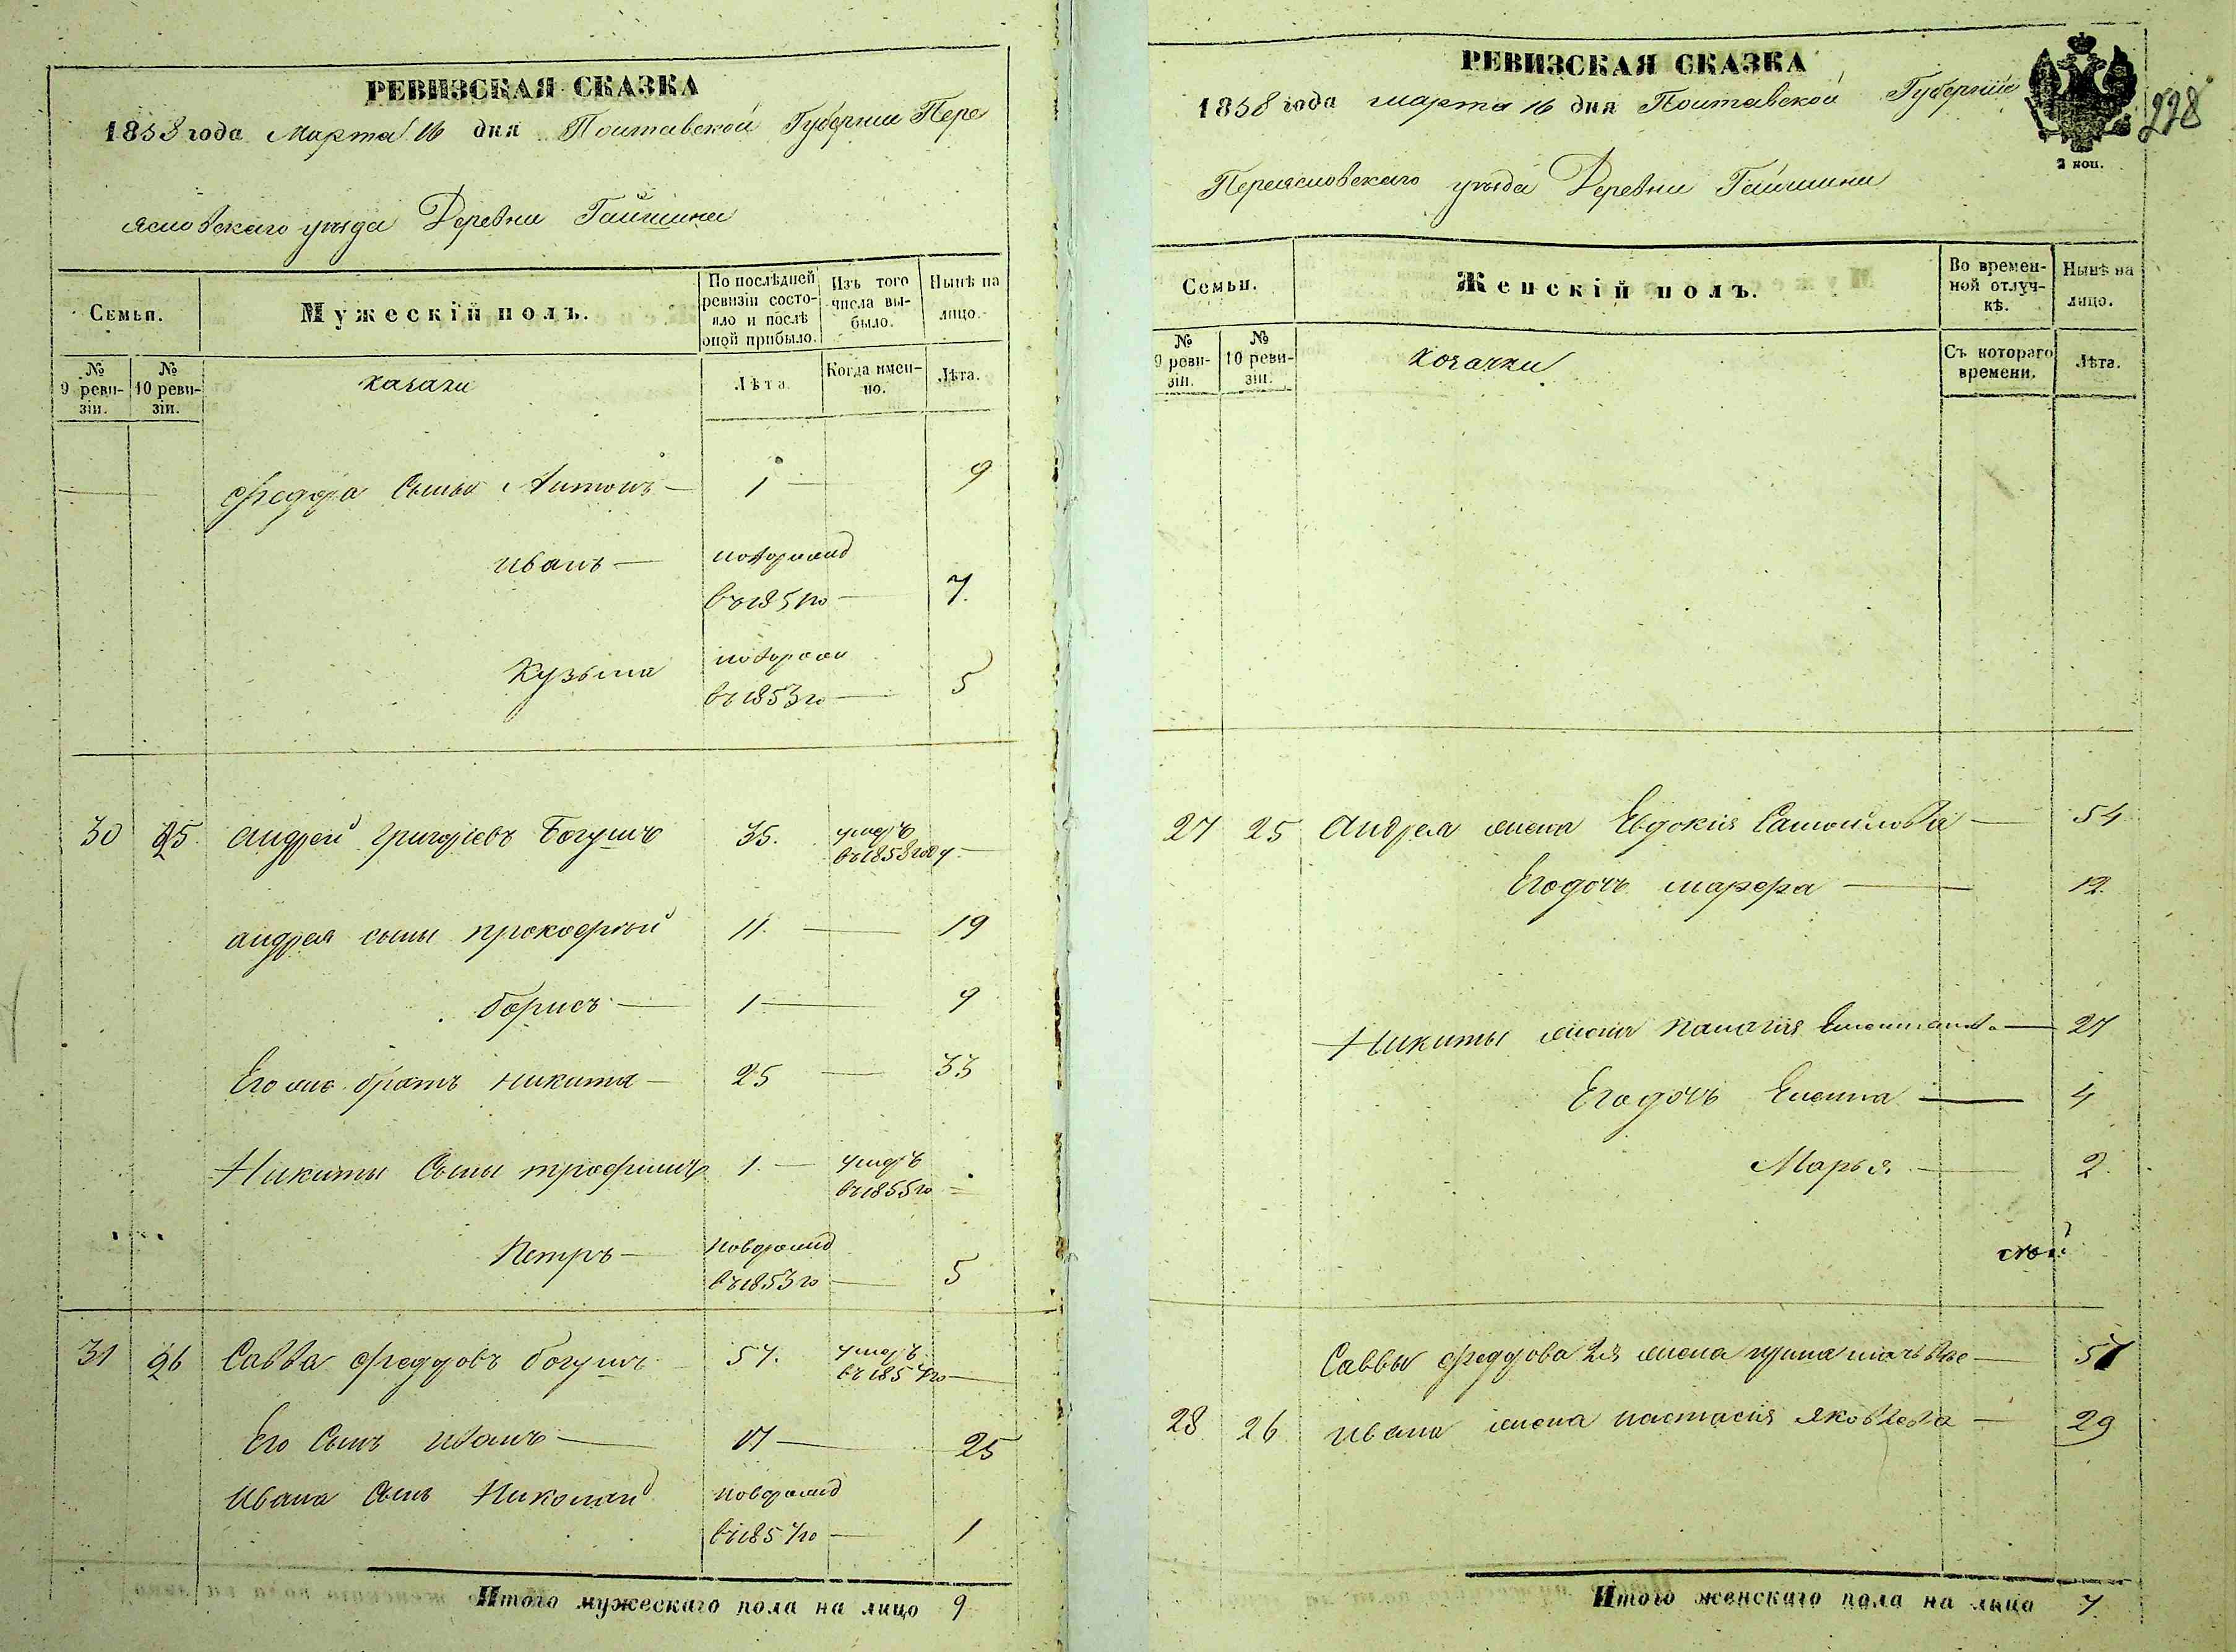 РЕВИЗСКАЯ СКАЗКА
1858 года Марта 16 дня Полтавской Губернии Пере
ясловского уезда Деревни Гайшина
Семьи.
Мужескій полъ.
По послѣдней ревизіи состояло и послѣ оной прибыло.
Изъ того числа выбыло.
Нынѣ на лицо.
№ 9 ревизіи.
№ 10 ревизіи.
казаки
Лѣта.
Когда именно.
Лѣта.
Феодора Сынья Антонъ 1 9
Иванъ новорожд
въ 1851го 7
Кузьма новорож
въ 1853го 5
30 25 Андрей Григорьевъ Богушъ 35. умеръ
въ 1858 году
Андрея сыны Прокофтий 11. 19
Борисъ 1 9
Его же братъ Никита 25 33
Никиты Сыны Трофимъ 1. умеръ
въ 1855го
Петръ новорожд
въ 1853го 5
31 26 Савва Федоровъ Богушъ 57. умеръ
въ 1857го
Его Сынъ Иванъ 17 25
Ивана Сынъ Николай новорожд
въ 1857го 1
Итого мужескаго пола на лицо 9
РЕВИЗСКАЯ СКАЗКА
1858 года марта 16 дня Полтавской Губернии
2 коп.
228
Переясловскаго уезда Деревни Гайшина
Семьи.
Женскій полъ.
Во временной отлучкѣ.
Нынѣ на лицо.
№ 9 ревизіи.
№ 10 ревизіи.
козачки
Съ котораго времени.
Лѣта.
27 25 Андрея жена Евдокия Самойлова 54
Его дочь Марфа 12.
Никиты жена Палагия 27
Его дочъ Елена 4
Марья 2.
Саввы Федорова 2я жена 57
28 26 Ивана жена Настасия Яковлева 29
Итого женскаго пола на лицо 7.